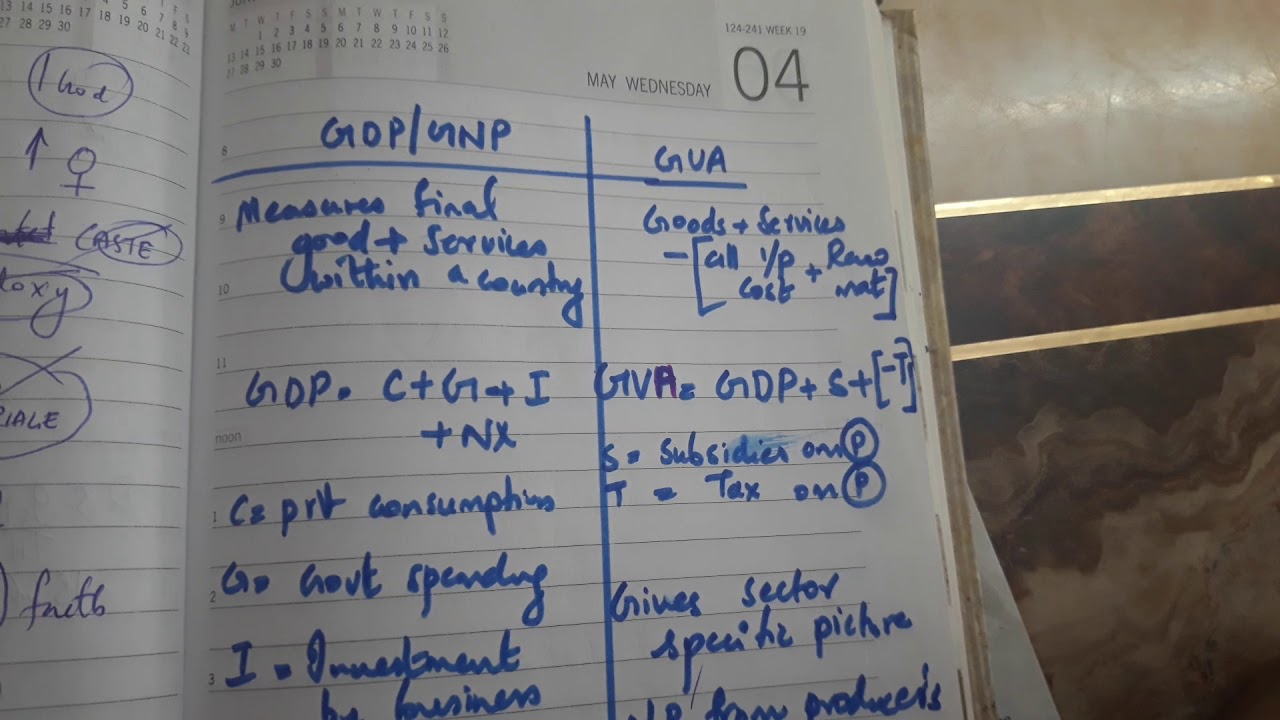 13 14 15 16 17 18 19 20 21 22
27 28 29 30
God
CASTE
oxy
IALE
facts
M T W T F S S M T W T F S S
1 2 3 4 5 6 7 8 9 10 11 12
13 14 15 16 17 18 19 20 21 22 23 24 25 26
27 28 29 30
124-241 WEEK 19
MAY WEDNESDAY 04
8
GDP/GNP
9
Measures final
good + Services
within a country
10
11
GDP = C + G + I
+ NX
noon
1
C = pvt consumption
2
G = Govt spending
3
I = Investment
by business
GVA
Goods + Services
- [all i/p cost + Raw mat]
GVA = GDP + S + [-T]
S = subsidies on P
T = Tax on P
Gives sector
specific picture
from producer's